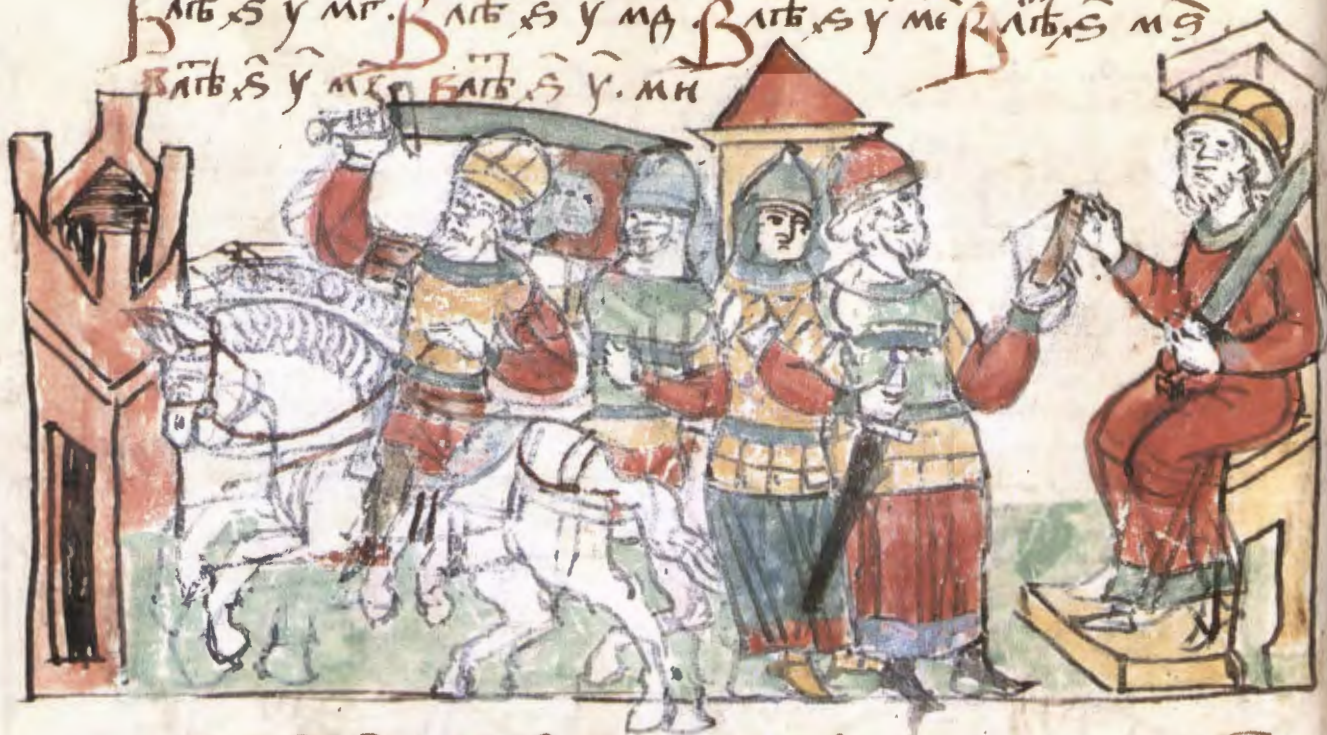 В лѣⷮ ҂ѕ҃ у҃ мг҃. В лѣⷮ ҂ѕ҃ у҃ мд҃. В лѣⷮ ҂ѕ҃ у҃ ме҃ В лѣⷮ ҂ѕ҃ мѕ҃
В лѣⷮ ҂ѕ҃ у҃ мз҃ В лѣⷮ ҂ѕ҃ у҃. ми҃